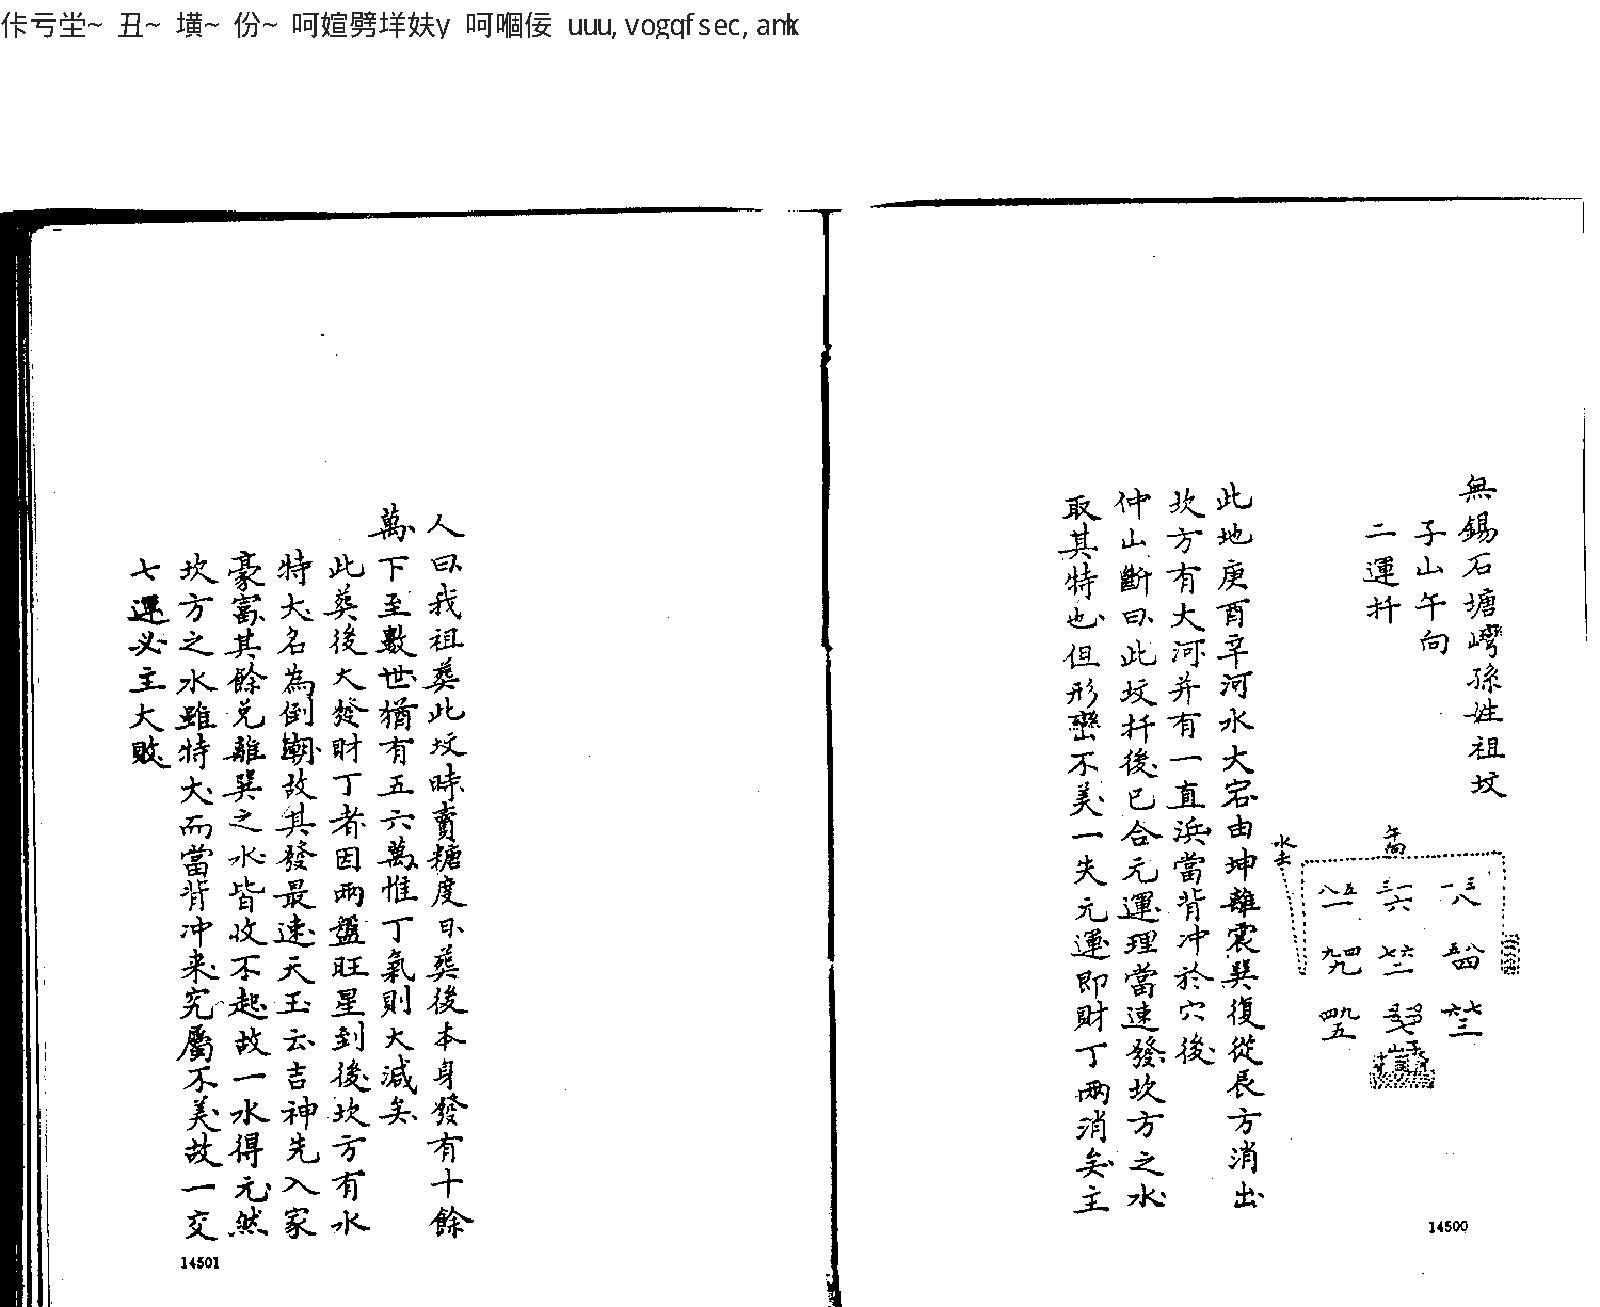 佧亏坣~ 丑~ 墴~ 份~ 呵媗劈垟妋y 呵嗰佞 uuu,vogqfsec,amk
無錫石塘嶀孫姓祖坟
子山午向
二運扦
午向
水去
一三八
三一六
八五一
五八四
七六二
九四九
六七三
四九五
此地庚酉辛河水大宕由坤離震巽復從艮方消出
坎方有大河并有一直浜當背冲於穴後
仲山斷曰此坟扦後已合元運理當速發坎方之水
取其特也但形巒不美一失元運即財丁兩消矣主
14500
人曰我祖葬此坟時賣糖度日葬後本身發有十餘
萬下至數世猶有五六萬惟丁氣則大減矣
此葬後大發財丁者因兩盤旺星到後坎方有水
特大名為倒潮故其發最速天玉云吉神先入家
豪富其餘兑離巽之水皆收不起故一水得元然
坎方之水雖特大而當背冲來究屬不美故一交
七運必主大敗
14501